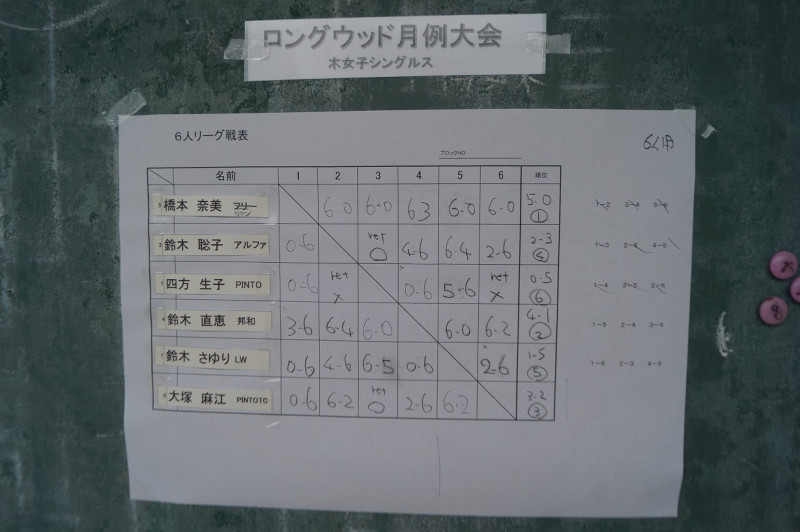 ロングウッド月例大会
木女子シングルス
6人リーグ戦表
6人用
ブロックNO
名前 1 2 3 4 5 6 順位
橋本 奈美 フリー リマン 6-0 6-0 6-3 6-0 6-0 5-0 ①
鈴木 聡子 アルファ 0-6 ret ○ 4-6 6-4 2-6 2-3 ④
四方 生子 PINTO 0-6 ret × 0-6 5-6 ret × 0-5 ⑥
鈴木 直恵 邦和 3-6 6-4 6-0 6-0 6-2 4-1 ②
鈴木 さゆり LW 0-6 4-6 6-5 0-6 2-6 1-5 ⑤
大塚 麻江 PINTOTC 0-6 6-2 ret ○ 2-6 6-2 3-2 ③
1-2 3-4 5-6
1-3 2-6 4-5
1-4 3-5 2-6
1-5 2-4 3-6
1-6 2-3 4-5